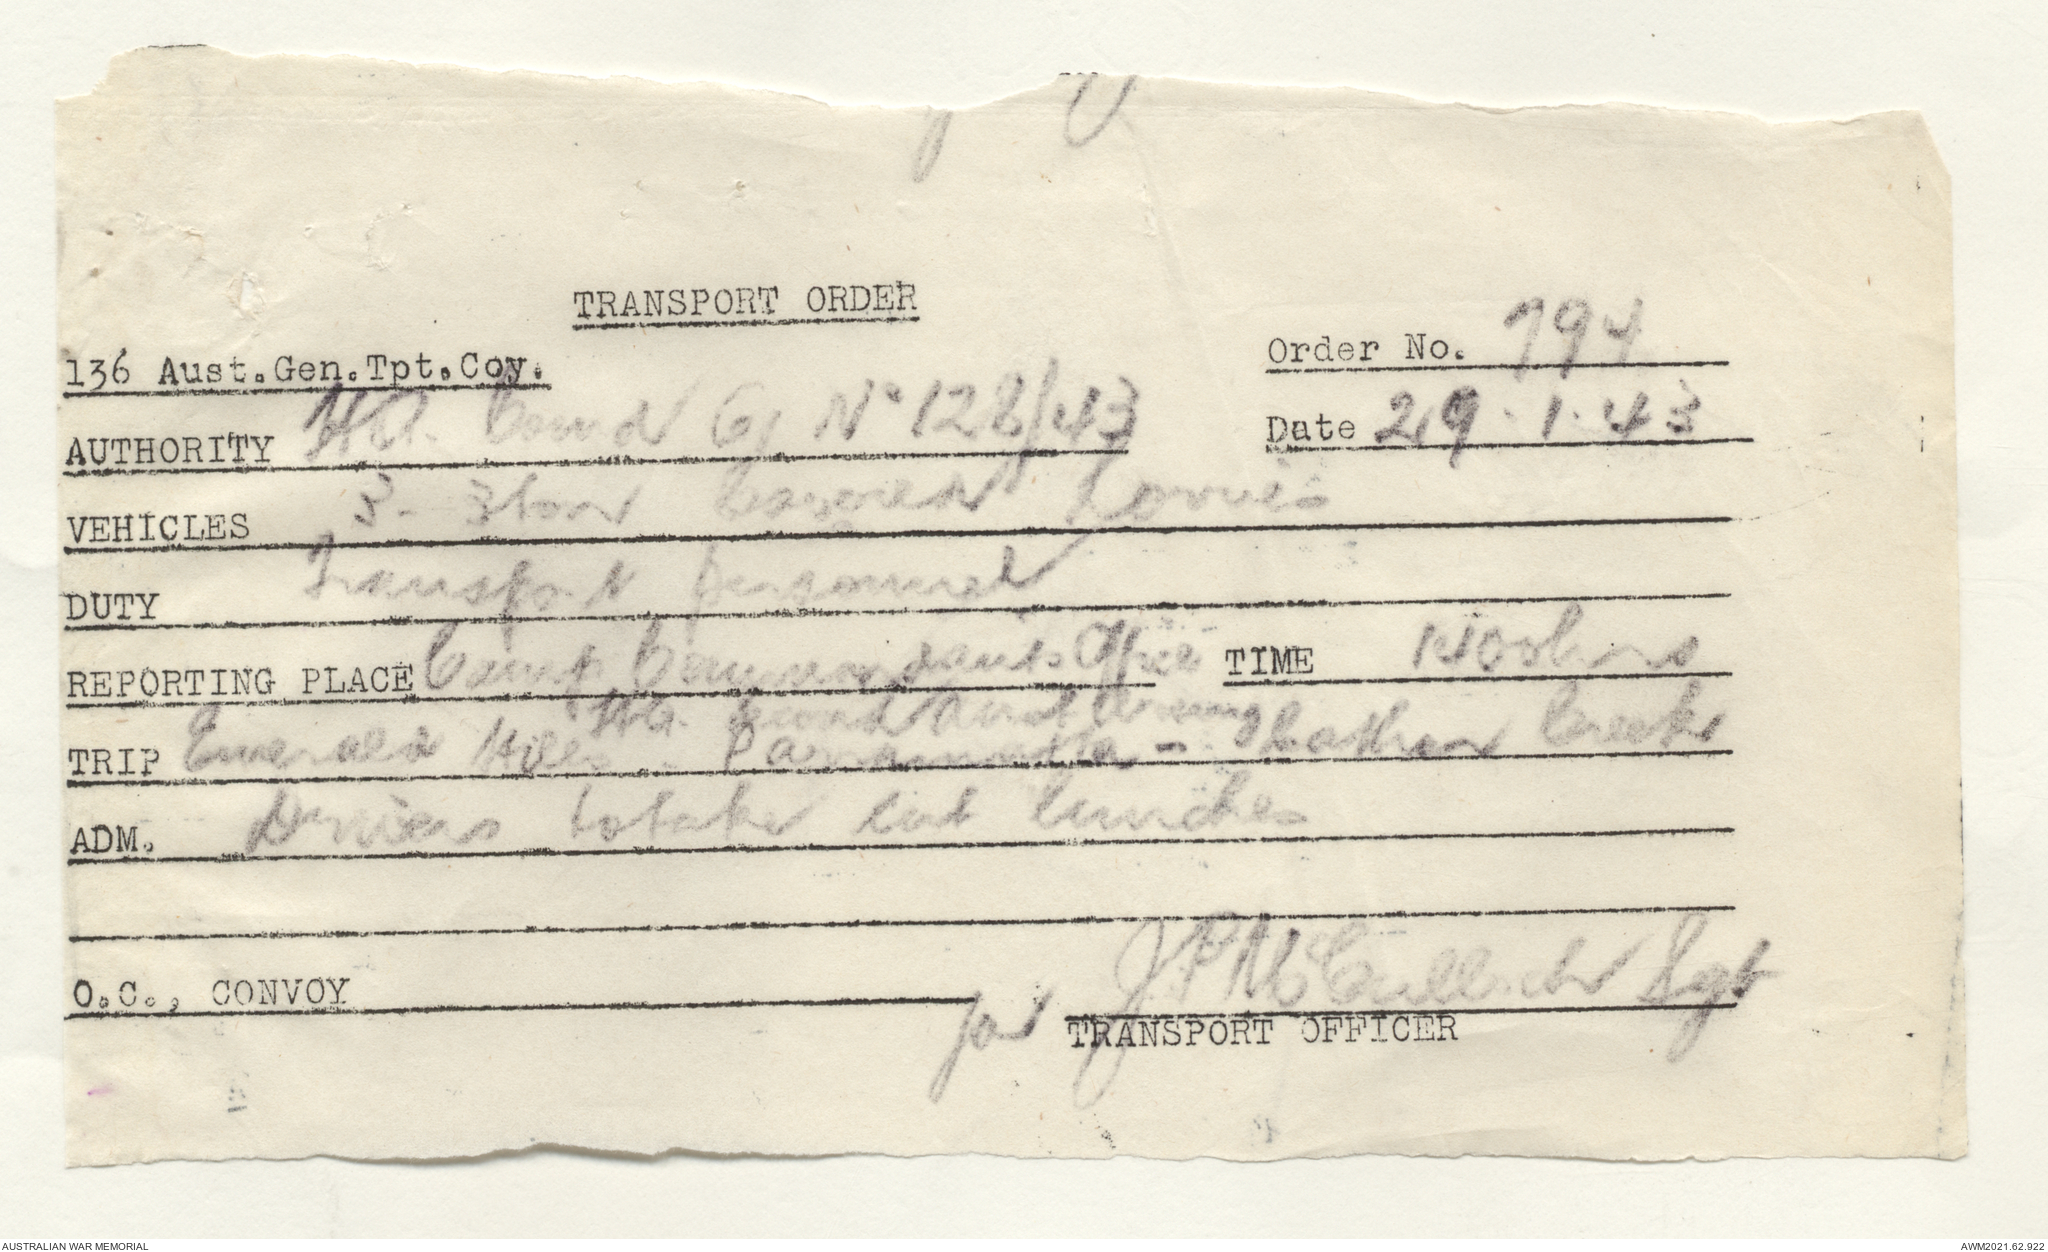 TRANSPORT ORDER
136 Aust.Gen.Tpt.Coy.
Order No. 794
AUTHORITY HQ. Comd Coy No 128/43
Date 29.1.43
VEHICLES 3 - 3 ton Covered Lorries
DUTY Transport personnel
REPORTING PLACE Camp Commandants Office TIME 1400hrs
HQ.
TRIP Emerald Hills - Parramatta - Creek
ADM. Drivers to take cut lunches
O.C., CONVOY
for J.P McCulloch Sgt
TRANSPORT OFFICER
AUSTRALIAN WAR MEMORIAL
AWM2021.62.922